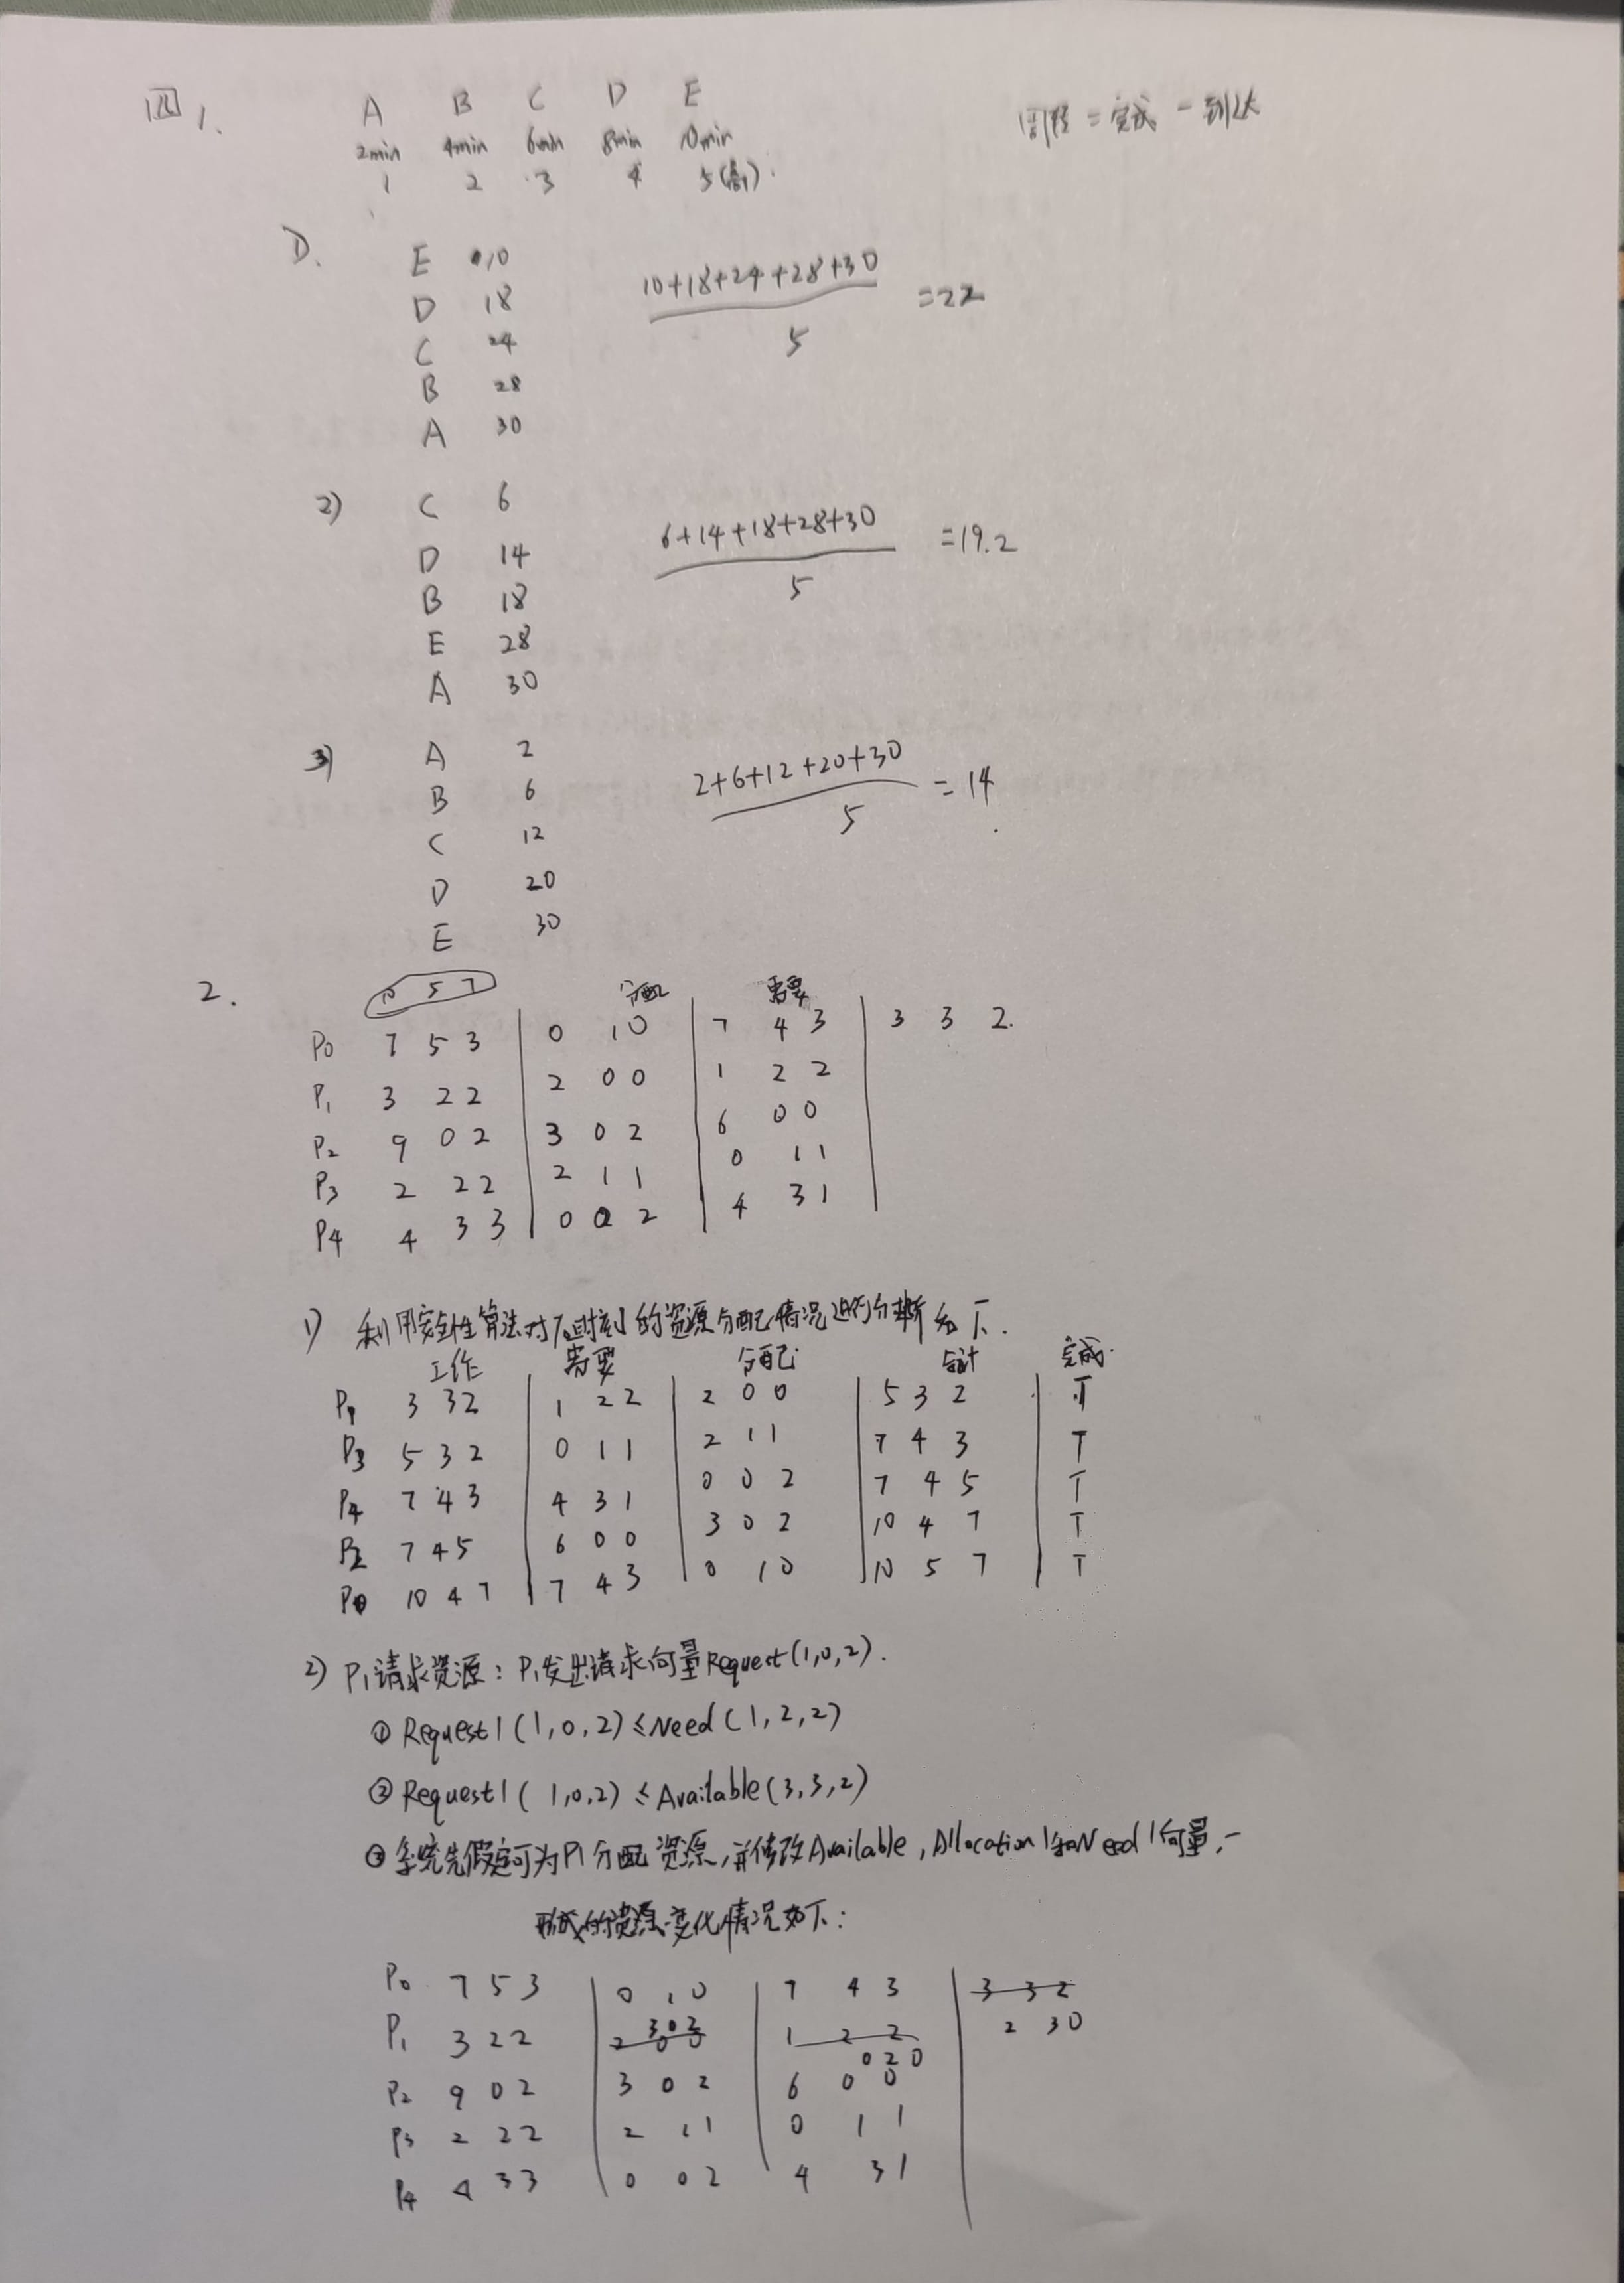 四 1. A B C D E
2min 4min 6min 8min 10min
1 2 3 4 5(高).
周转 = 完成 - 到达
1). E 10
D 18
C 24
B 28
A 30
10+18+24+28+30 / 5 = 22
2) C 6
D 14
B 18
E 28
A 30
6+14+18+28+30 / 5 = 19.2
3) A 2
B 6
C 12
D 20
E 30
2+6+12+20+30 / 5 = 14
2. 10 5 7 分配 需要
P0 7 5 3 | 0 1 0 | 7 4 3 | 3 3 2.
P1 3 2 2 | 2 0 0 | 1 2 2
P2 9 0 2 | 3 0 2 | 6 0 0
P3 2 2 2 | 2 1 1 | 0 1 1
P4 4 3 3 | 0 0 2 | 4 3 1
1) 利用安全性算法对T0时刻的资源分配情况进行分析如下.
工作 需要 分配 合计 完成.
P1 3 3 2 | 1 2 2 | 2 0 0 | 5 3 2 | T
P3 5 3 2 | 0 1 1 | 2 1 1 | 7 4 3 | T
P4 7 4 3 | 4 3 1 | 0 0 2 | 7 4 5 | T
P2 7 4 5 | 6 0 0 | 3 0 2 | 10 4 7 | T
P0 10 4 7 | 7 4 3 | 0 1 0 | 10 5 7 | T
2) P1请求资源: P1发出请求向量Request(1,0,2).
① Request1(1,0,2)≤Need(1,2,2)
② Request1(1,0,2)≤Available(3,3,2)
③ 系统先假定可为P1分配资源,并修改Available,Allocation1和Need1向量,
形成的资源变化情况如下:
P0 7 5 3 | 0 1 0 | 7 4 3 | 3 3 2
P1 3 2 2 | 2 0 0 3 0 2 | 1 2 2 0 2 0 | 2 3 0
P2 9 0 2 | 3 0 2 | 6 0 0
P3 2 2 2 | 2 1 1 | 0 1 1
P4 4 3 3 | 0 0 2 | 4 3 1